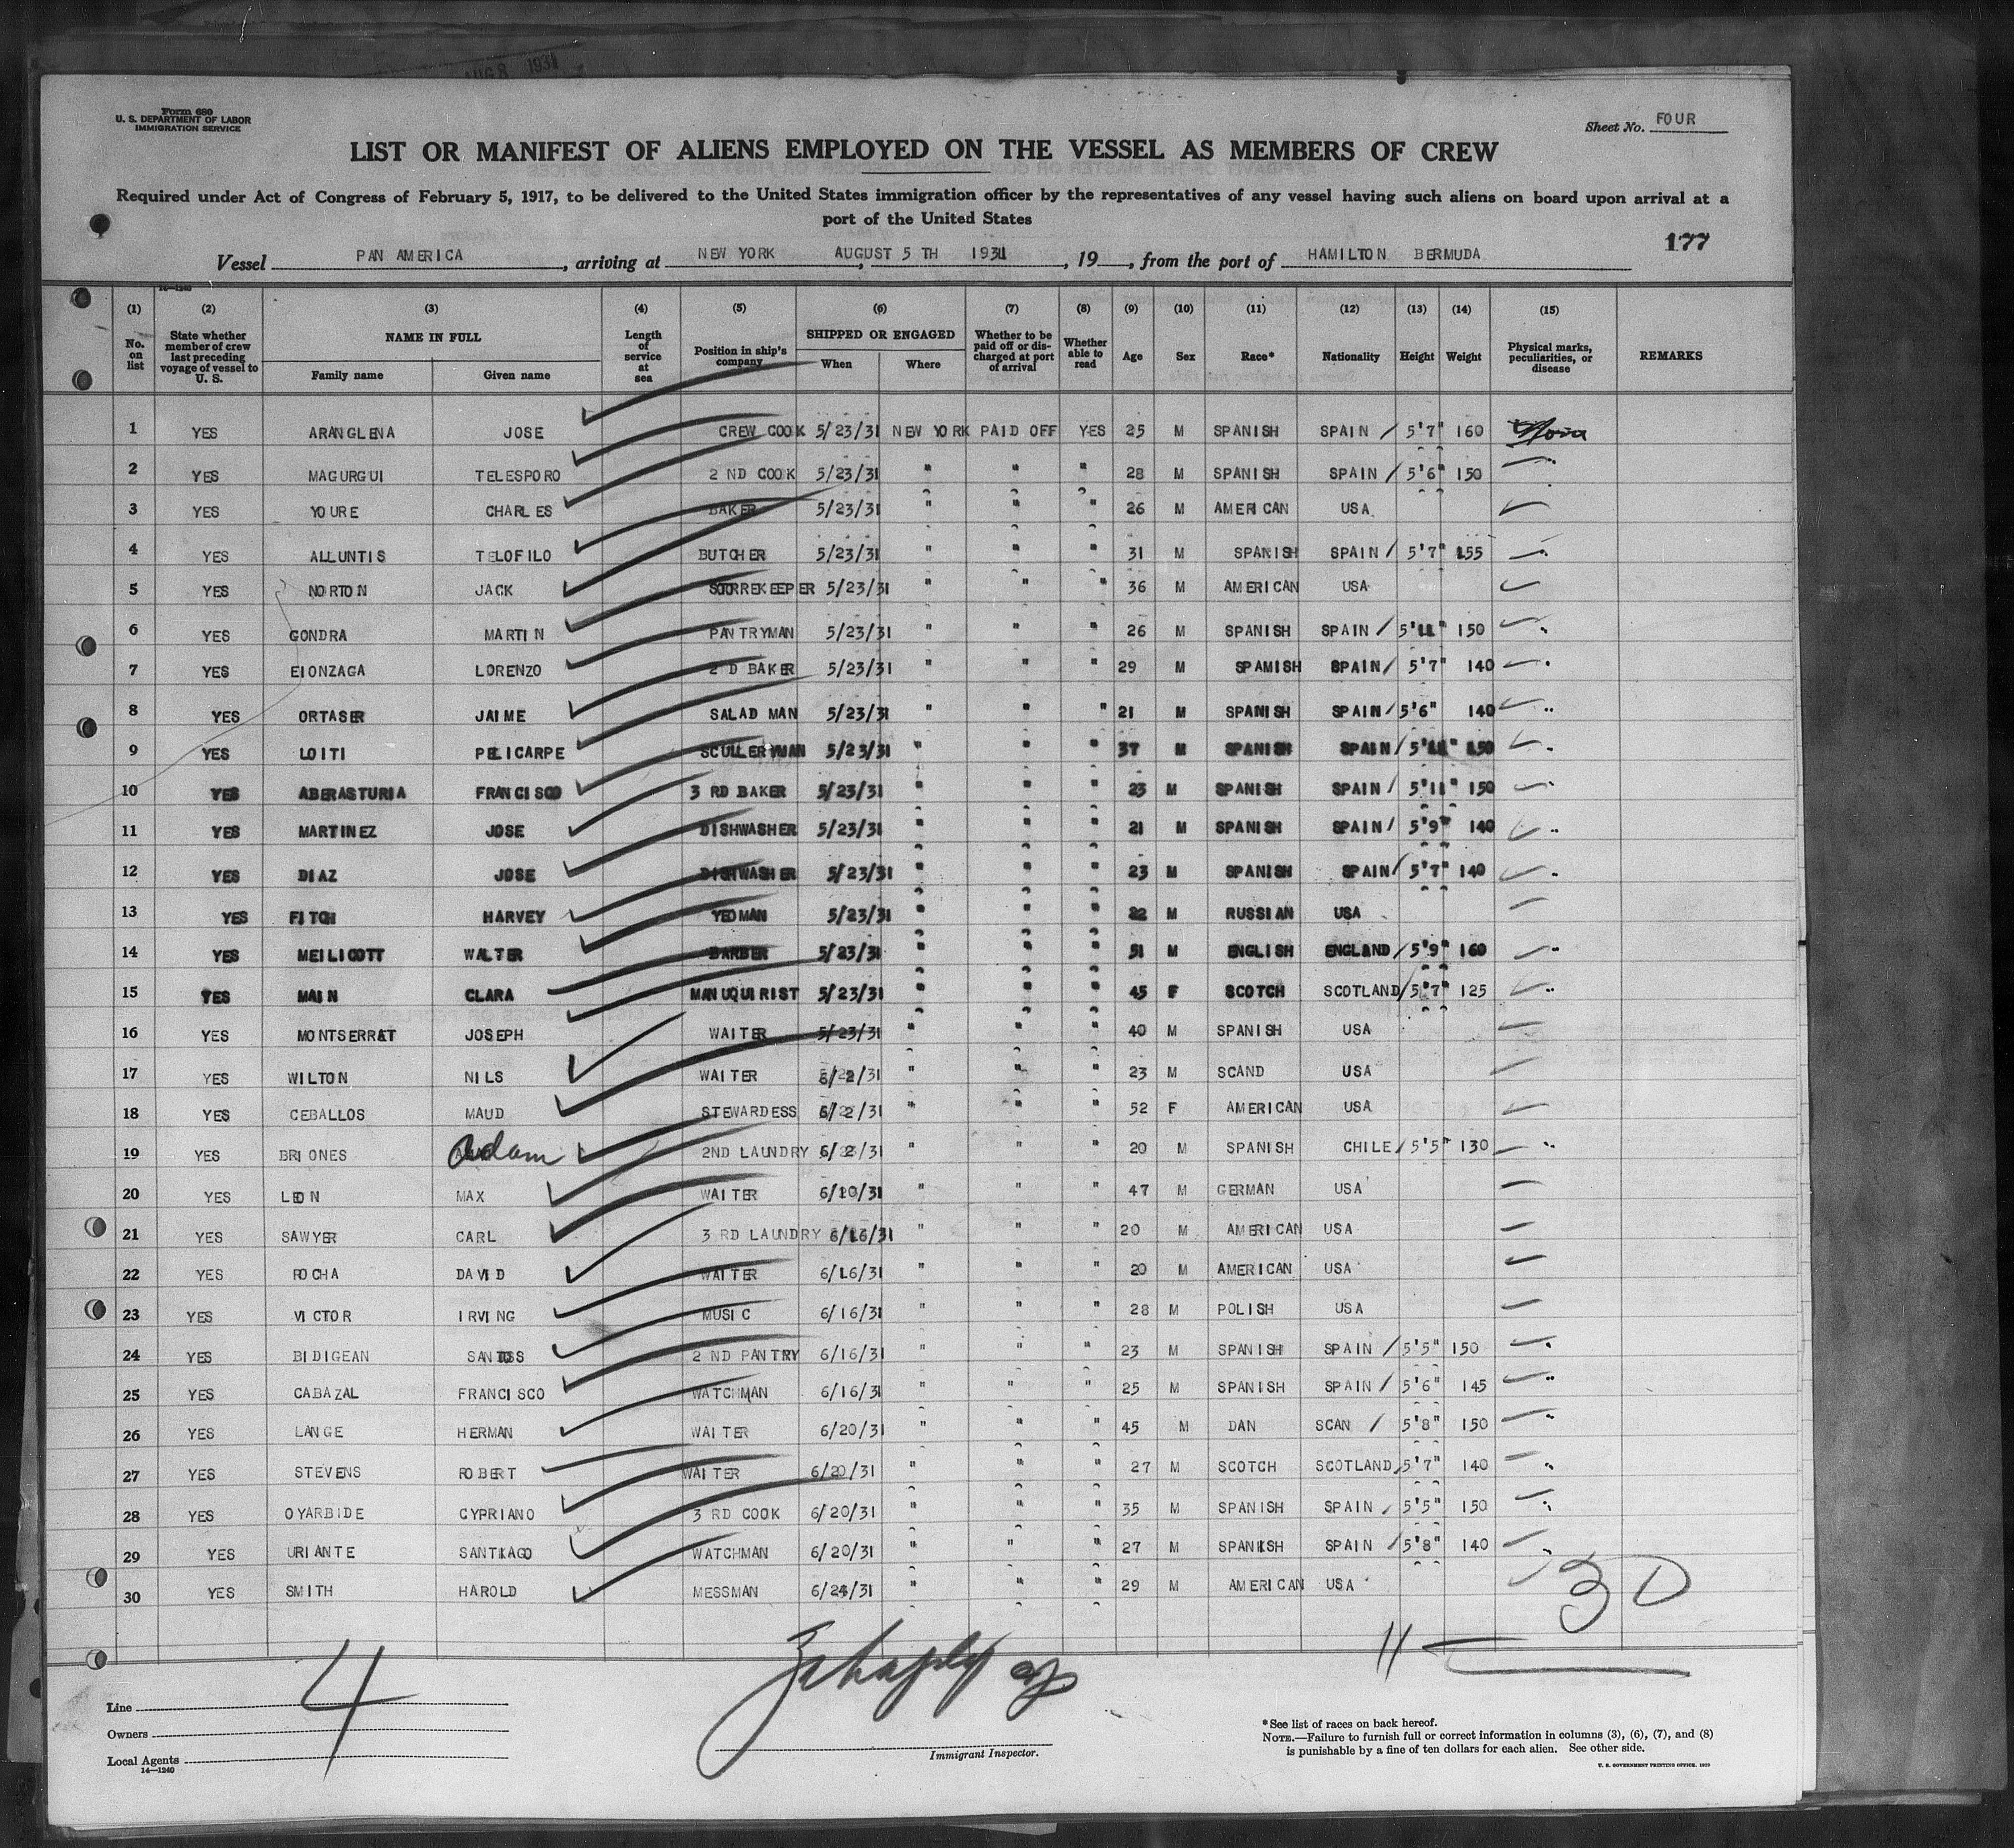 AUG 8 1931
Form 680
U. S. DEPARTMENT OF LABOR
IMMIGRATION SERVICE
Sheet No. FOUR
LIST OR MANIFEST OF ALIENS EMPLOYED ON THE VESSEL AS MEMBERS OF CREW
Required under Act of Congress of February 5, 1917, to be delivered to the United States immigration officer by the representatives of any vessel having such aliens on board upon arrival at a
port of the United States
177
Vessel PAN AMERICA, arriving at NEW YORK, AUGUST 5 TH 1931, 19, from the port of HAMILTON BERMUDA
14—1240
(1) (2) (3) (4) (5) (6) (7) (8) (9) (10) (11) (12) (13) (14) (15)
No. on list State whether member of crew last preceding voyage of vessel to U. S. NAME IN FULL Family name Given name Length of service at sea Position in ship's company SHIPPED OR ENGAGED When Where Whether to be paid off or discharged at port of arrival Whether able to read Age Sex Race* Nationality Height Weight Physical marks, peculiarities, or disease REMARKS
1 YES ARANGLENA JOSE CREW COOK 5/23/31 NEW YORK PAID OFF YES 25 M SPANISH SPAIN / 5'7" 160
2 YES MAGURGUI TELESPORO 2 ND COOK 5/23/31 " " " 28 M SPANISH SPAIN / 5'6" 150
3 YES YOURE CHARLES BAKER 5/23/31 " " " 26 M AMERICAN USA
4 YES ALLUNTIS TELOFILO BUTCHER 5/23/31 " " " 31 M SPANISH SPAIN / 5'7" 155
5 YES NORTON JACK STORREKEEPER 5/23/31 " " " 36 M AMERICAN USA
6 YES GONDRA MARTIN PANTRYMAN 5/23/31 " " " 26 M SPANISH SPAIN / 5'11" 150
7 YES EIONZAGA LORENZO 2 D BAKER 5/23/31 " " " 29 M SPAMISH SPAIN / 5'7" 140
8 YES ORTASER JAIME SALAD MAN 5/23/31 " " " 21 M SPANISH SPAIN / 5'6" 140
9 YES LOITI PELICARPE SCULLERYMAN 5/23/31 " " " 37 M SPANISH SPAIN / 5'11" 150
10 YES ABERASTURIA FRANCISCO 3 RD BAKER 5/23/31 " " " 23 M SPANISH SPAIN / 5'11" 150
11 YES MARTINEZ JOSE DISHWASHER 5/23/31 " " " 21 M SPANISH SPAIN / 5'9" 140
12 YES DIAZ JOSE DISHWASHER 5/23/31 " " " 23 M SPANISH SPAIN / 5'7" 140
13 YES FITCH HARVEY YEOMAN 5/23/31 " " " 22 M RUSSIAN USA
14 YES MEILICOTT WALTER BARBER 5/23/31 " " " 51 M ENGLISH ENGLAND / 5'9" 160
15 YES MAIN CLARA MANUQUIRIST 5/23/31 " " " 45 F SCOTCH SCOTLAND / 5'7" 125
16 YES MONTSERRAT JOSEPH WAITER 5/23/31 " " " 40 M SPANISH USA
17 YES WILTON NILS WAITER 6/2/31 " " " 23 M SCAND USA
18 YES CEBALLOS MAUD STEWARDESS 6/2/31 " " " 52 F AMERICAN USA
19 YES BRIONES Adam 2ND LAUNDRY 6/2/31 " " " 20 M SPANISH CHILE / 5'5" 130
20 YES LEON MAX WAITER 6/10/31 " " " 47 M GERMAN USA
21 YES SAWYER CARL 3 RD LAUNDRY 6/16/31 " " " 20 M AMERICAN USA
22 YES ROCHA DAVID WAITER 6/16/31 " " " 20 M AMERICAN USA
23 YES VICTOR IRVING MUSIC 6/16/31 " " " 28 M POLISH USA
24 YES BIDIGEAN SANTOS 2 ND PANTRY 6/16/31 " " " 23 M SPANISH SPAIN / 5'5" 150
25 YES CABAZAL FRANCISCO WATCHMAN 6/16/31 " " " 25 M SPANISH SPAIN / 5'6" 145
26 YES LANGE HERMAN WAITER 6/20/31 " " " 45 M DAN SCAN / 5'8" 150
27 YES STEVENS ROBERT WAITER 6/20/31 " " " 27 M SCOTCH SCOTLAND / 5'7" 140
28 YES OYARBIDE CYPRIANO 3 RD COOK 6/20/31 " " " 35 M SPANISH SPAIN / 5'5" 150
29 YES URIANTE SANTIAGO WATCHMAN 6/20/31 " " " 27 M SPANISH SPAIN / 5'8" 140
30 YES SMITH HAROLD MESSMAN 6/24/31 " " " 29 M AMERICAN USA
30
11
4
Line
Owners
Local Agents
14—1240
Immigrant Inspector.
*See list of races on back hereof.
NOTE.—Failure to furnish full or correct information in columns (3), (6), (7), and (8)
is punishable by a fine of ten dollars for each alien. See other side.
U. S. GOVERNMENT PRINTING OFFICE: 1929